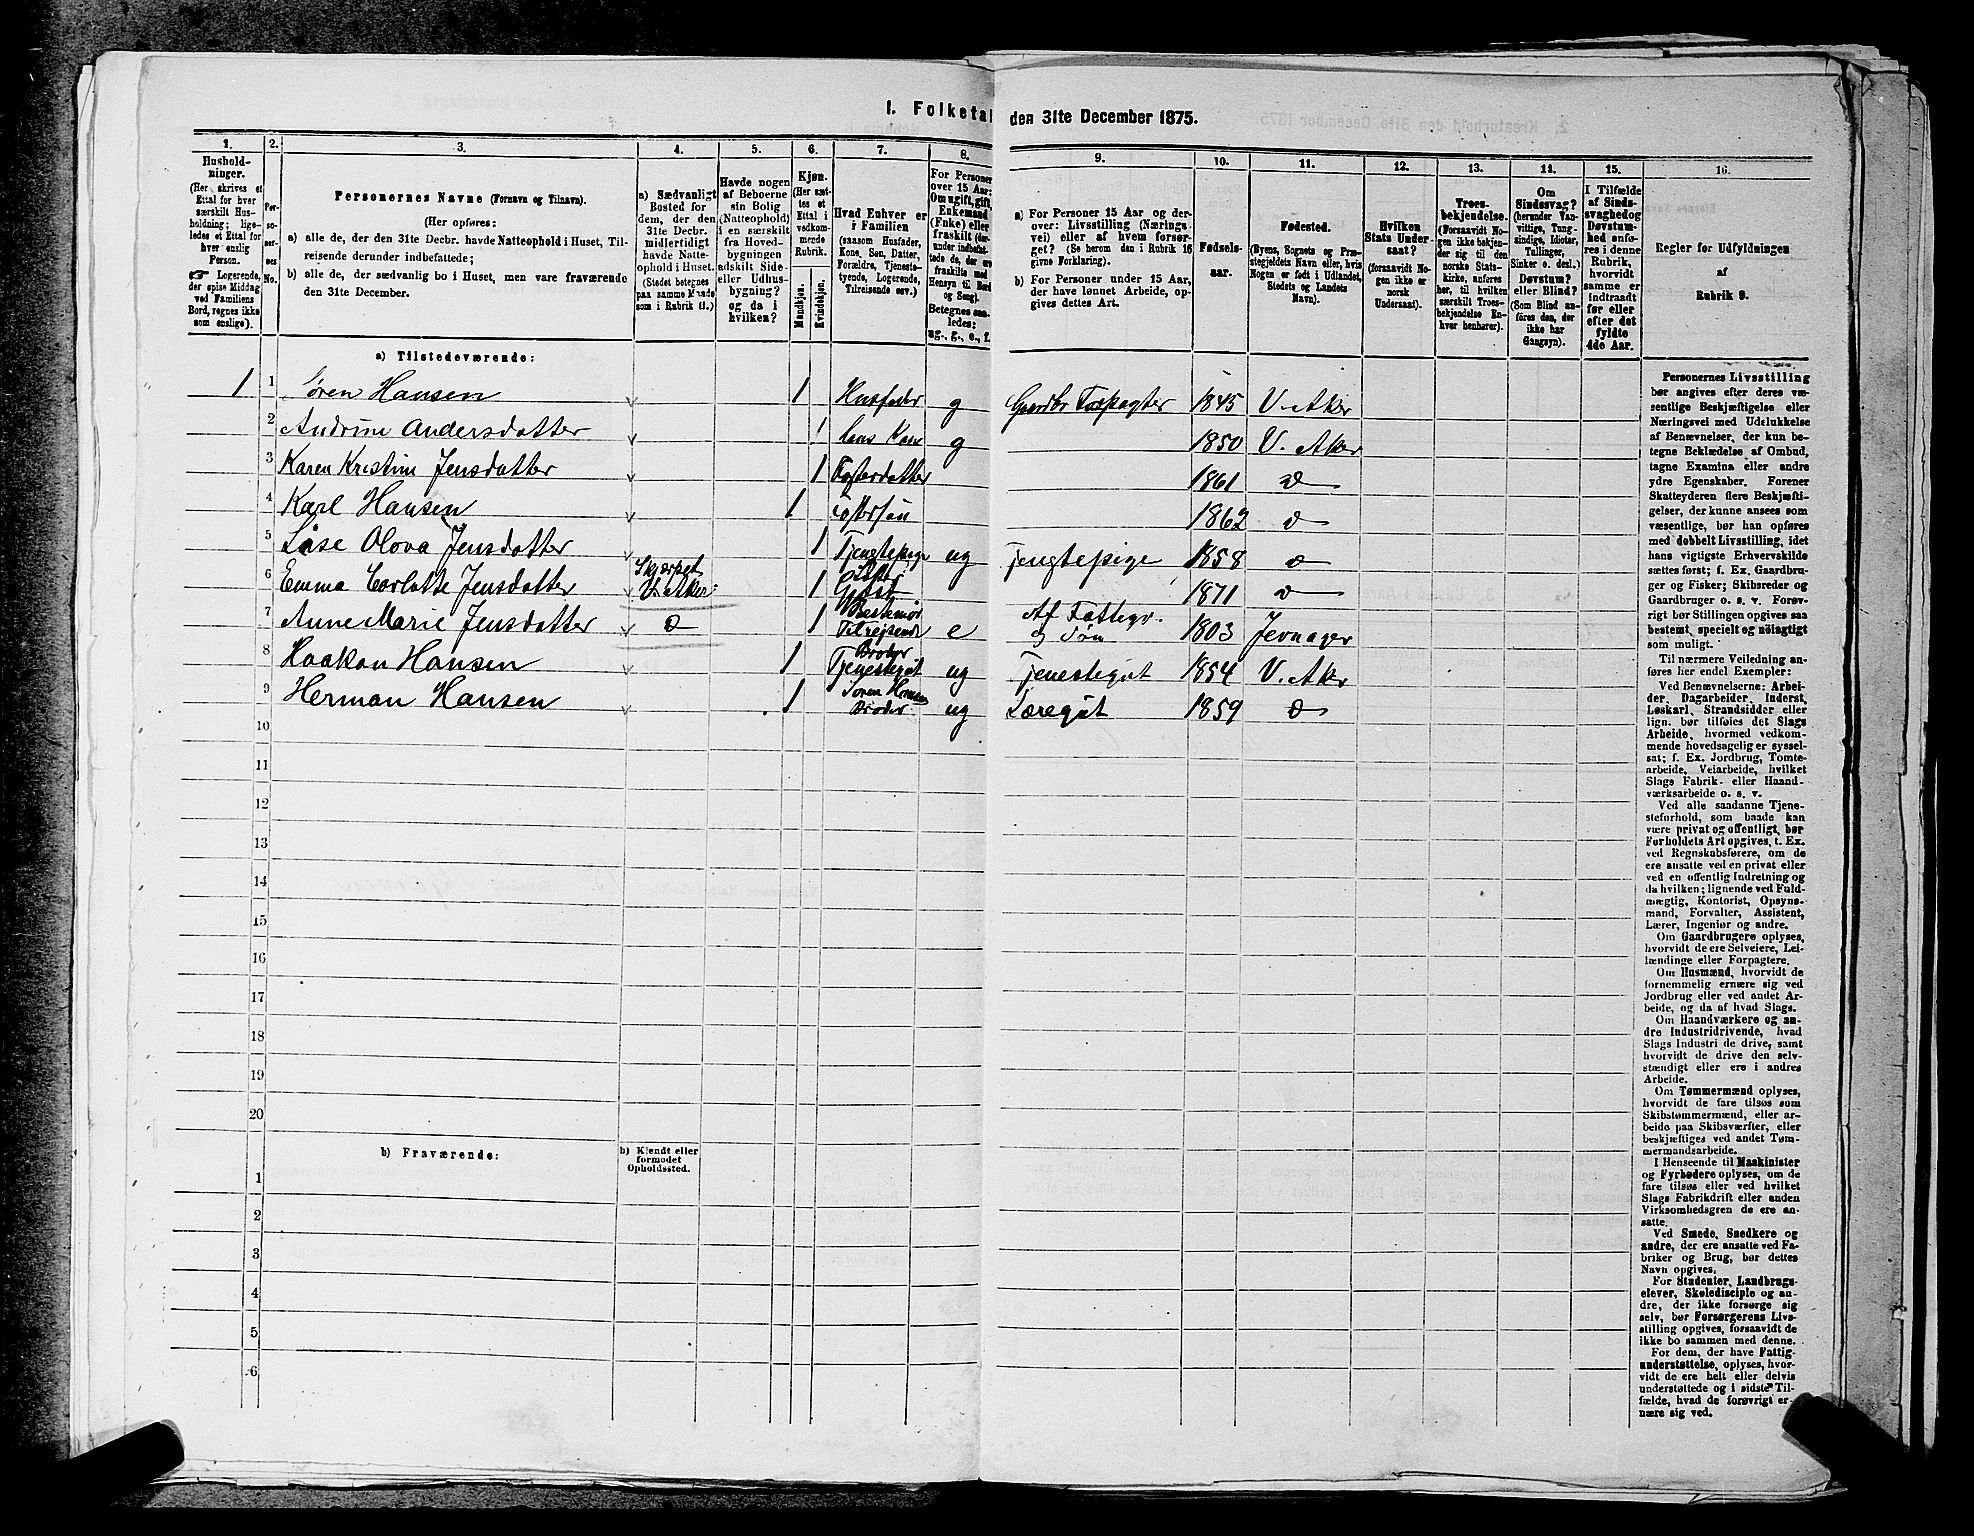 I. Folketal den 31te December 1875.
1. 2. 3. 4. 5. 6. 7. 8. 9. 10. 11. 12. 13. 14. 15. 16.
Husholdninger.
(Her skrives et
Ettal for hver
særskilt Husholdning;
ligeledes et Ettal for
hver enslig
Person.
☞ Logerende,
der spise Middag
ved Familiens
Bord, regnes ikke
som enslige).
Personernes No.
Personernes Navne (Fornavn og Tilnavn).
(Her opføres:
a) alle de, der den 31te Decbr. havde Natteophold i Huset, Tilreisende derunder indbefattede;
b) alle de, der sædvanlig bo i Huset, men vare fraværende
den 31te December.
a) Sædvanligt
Bosted for
dem, der den
31te Decbr.
midlertidigt
havde Natteophold i Huset.
(Stedet betegnes
paa samme Maade
som i Rubrik 11.)
Havde nogen
af Beboerne
sin Bolig
(Natteophold)
i en særskilt
fra Hovedbygningen
adskilt Side-
eller Udhusbygning?
og da i
hvilken?
Kjøn.
(Her sættes et
Ettal i
vedkommende
Rubrik.
Mandkjøn.
Kvindekjøn.
Hvad Enhver er
i Familien
(saasom Husfader,
Kone, Søn, Datter,
Forældre, Tjenestetyende, Logerende,
Tilreisende osv.)
For Personer
over 15 Aar:
Om ugift, gift,
Enkemand
(Enke) eller
fraskilt
Betegnes saaledes:
ug., g., e., f.
a) For Personer 15 Aar og derover: Livsstilling (Næringsvei) eller af hvem forsørget? (Se herom den i Rubrik 16
givne Forklaring).
b) For Personer under 15 Aar,
der have lønnet Arbeide, opgives dettes Art.
Fødselsaar.
Fødested.
(Byens, Sognets og Præstegjeldets Navn eller, hvis
Nogen er født i Udlandet,
Stedets og Landets
Navn).
Hvilken
Stats Undersaat?
(forsaavidt Nogen ikke er
norsk
Undersaat).
Troesbekjendelse.
(Forsaavidt Nogen ikke bekjender sig til den
norske Statskirke, anføres
her, til hvilken
særskilt Troesbekjendelse Enhver henhører).
Om
Sindssvag?
(herunder Vanvittige, Tungsindige, Idioter,
Tullinger,
Sinker o. desl.)
Døvstum?
eller Blind?
(Som Blind anføres den, der
ikke har
Gangsyn).
I Tilfælde
af Sindssvaghed og
Døvstumhed anføres i denne
Rubrik,
hvorvidt
samme er
indtraadt
før eller
efter det
fyldte
4de Aar.
Regler for Udfyldningen
af
Rubrik 9.
a) Tilstedeværende:
1 1 Søren Hansen 1 Husfader g Gaardbr Forpagter 1845 V. Aker
2 Andrine Andersdatter 1 hans Kone g 1850 V. Aker
3 Karen Kristine Jensdatter 1 Fosterdatter 1861 do
4 Karl Hansen 1 Fostersøn 1862 do
5 Lise Olova Jensdatter 1 Tjenestepige ug Tjenestepige 1858 do
6 Emma Corlatte Jensdatter V. Aker 1 Gjæst 1871 do
7 Anne Marie Jensdatter do 1 Bestemor Tilreisende e Af Fattigv. og Søn 1803 Jevnager
8 Haakon Hansen 1 Broder Tjenestegut ug Tjenestegut 1854 V. Aker
9 Herman Hansen 1 Søren Hansens Broder ug Læregut 1859 do
10
11
12
13
14
15
16
17
18
19
20
b) Fraværende:
b) Kjendt eller
formodet
Opholdssted.
1
2
3
4
5
6
Personernes Livsstilling
bør angives efter deres væsentlige Beskjæftigelse eller
Næringsvei med Udelukkelse
af Benævnelser, der kun betegne Beklædelse af Ombud,
tagne Examina eller andre
ydre Egenskaber. Forener
Skatteyderen flere Beskjæftigelser, der kunne ansees som
væsentlige, bør han opføres
med dobbelt Livsstilling, idet
hans vigtigste Erhvervskilde
sættes først; f. Ex. Gaardbruger og Fisker; Skibsreder og
Gaardbruger o. s. v. Forøvrigt bør Stillingen opgives saa
bestemt, specielt og nøiagtigt
som muligt.
Til nærmere Veiledning anføres her endel Exempler:
Ved Benævnelserne: Arbeider, Dagarbeider, Inderst,
Løskarl, Strandsidder eller
lign. bør tilføies det Slags
Arbeide, hvormed vedkommende hovedsagelig er sysselsat; f. Ex. Jordbrug, Tomtearbeide, Veiarbeide, hvilket
Slags Fabrik- eller Haandværksarbeide o. s. v.
Ved alle saadanne Tjenesteforhold, som baade kan
være privat og offentligt, bør
Forholdets Art opgives, t. Ex.
ved Regnskabsførere, om de
ere ansatte ved en privat eller
ved en offentlig Indretning og
da hvilken; lignende ved Fuldmægtig, Kontorist, Opsynsmand, Forvalter, Assistent,
Lærer, Ingeniør og andre.
Om Gaardbrugere oplyses,
hvorvidt de ere Selveiere, Leilændinge eller Forpagtere.
Om Husmænd, hvorvidt de
fornemmelig ernære sig ved
Jordbrug eller ved andet Arbeide, og da af hvad Slags.
Om Haandværkere og andre Industridrivende, hvad
Slags Industri de drive, samt
hvorvidt de drive den selvstændigt eller ere i andres
Arbeide.
Om Tømmermænd oplyses,
hvorvidt de fare tilsøs som
Skibstømmermænd, eller arbeide paa Skibsværfter, eller
beskjæftiges ved andet Tømmermandsarbeide.
I Henseende til Maskinister
og Fyrbødere oplyses, om de
fare tilsøs eller ved hvilket
Slags Fabrikdrift eller anden
Virksomhedsgren de ere ansatte.
Ved Smede, Snedkere og
andre, der ere ansatte ved Fabriker og Brug, bør dettes
Navn opgives.
For Studenter, Landbrugselever, Skoledisciple og andre, der ikke forsørge sig
selv, bør Forsørgerens Livsstilling opgives, forsaavidt de
ikke bo sammen med denne.
For dem, der have Fattigunderstøttelse, oplyses, hvorvidt de ere helt eller delvis
understøttede og i sidste Tilfælde, hvad de forøvrigt ernære sig ved.